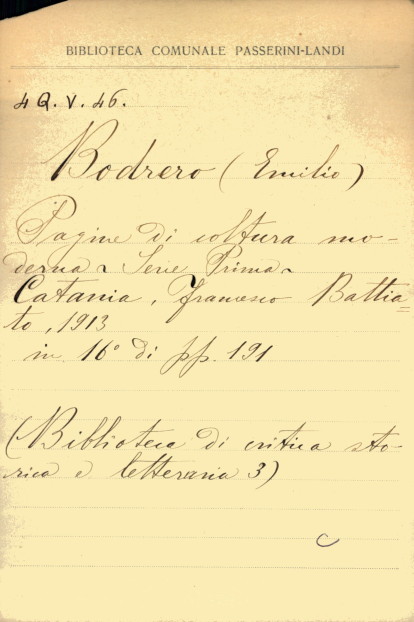 BIBLIOTECA COMUNALE PASSERINI-LANDI
4 Q. V. 46.
Bodrero (Emilio)
Pagine di coltura mo-
derna ~ Serie Prima ~
Catania, Francesco Battia=
to, 1913
in 16° di pp. 191
(Biblioteca di critica sto-
rica e letteraria 3)
C